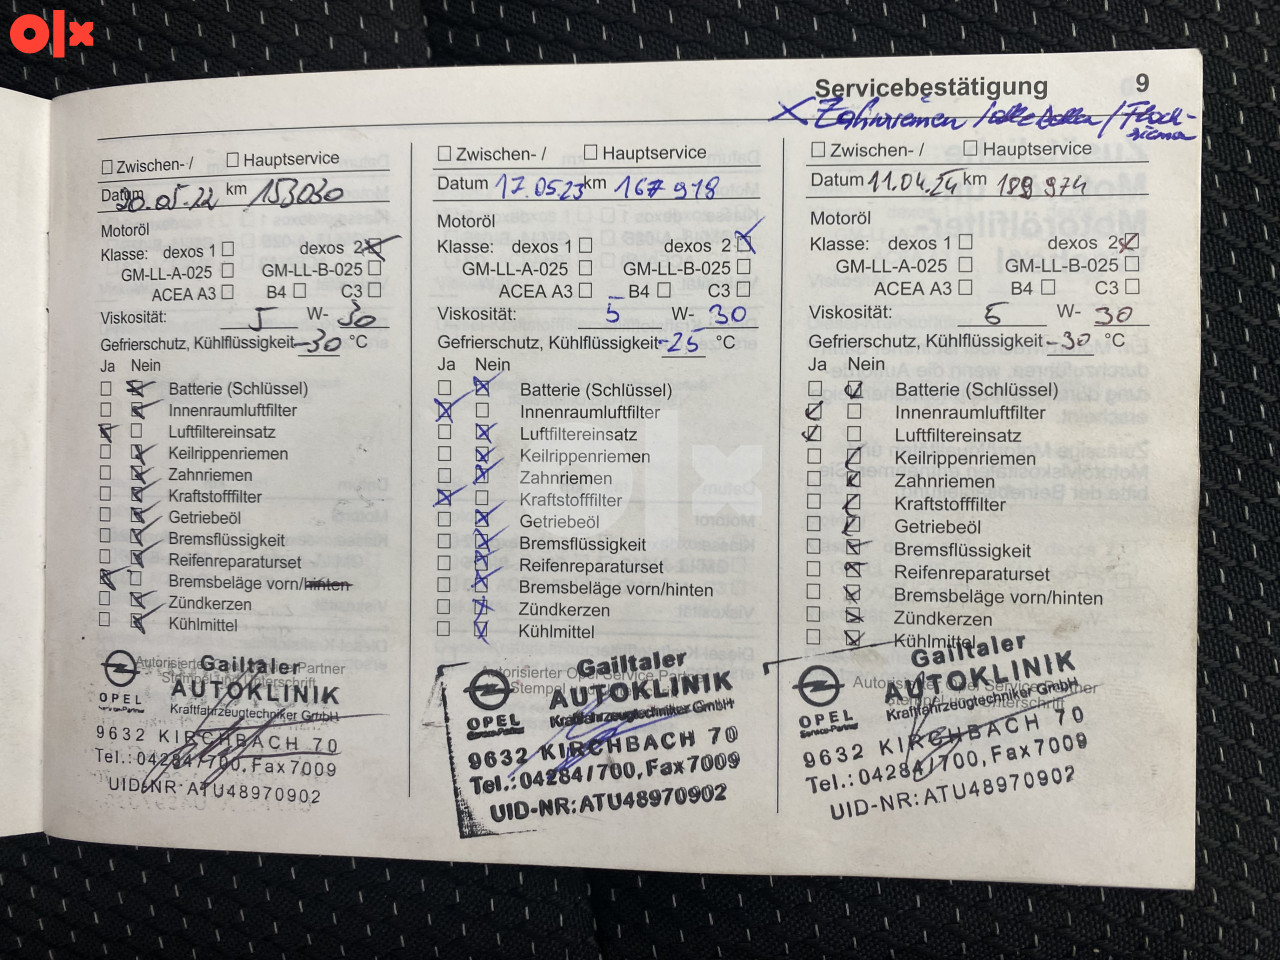 olx
Servicebestätigung 9
Zahnriemen
Zwischen- / Hauptservice
Datum 20.05.22 km 153030
Motoröl
Klasse: dexos 1 dexos 2
GM-LL-A-025 GM-LL-B-025
ACEA A3 B4 C3
Viskosität: 5 W- 30
Gefrierschutz, Kühlflüssigkeit -30 °C
Ja Nein
Batterie (Schlüssel)
Innenraumluftfilter
Luftfiltereinsatz
Keilrippenriemen
Zahnriemen
Kraftstofffilter
Getriebeöl
Bremsflüssigkeit
Reifenreparaturset
Bremsbeläge vorn/hinten
Zündkerzen
Kühlmittel
Autorisierter Opel Service Partner
Stempel und Unterschrift
Gailtaler
AUTOKLINIK
Kraftfahrzeugtechniker GmbH
OPEL
Service-Partner
9632 KIRCHBACH 70
Tel.: 04284/700, Fax 7009
UID-NR: ATU48970902
Zwischen- / Hauptservice
Datum 17.05.23 km 167 918
Motoröl
Klasse: dexos 1 dexos 2
GM-LL-A-025 GM-LL-B-025
ACEA A3 B4 C3
Viskosität: 5 W- 30
Gefrierschutz, Kühlflüssigkeit -25 °C
Ja Nein
Batterie (Schlüssel)
Innenraumluftfilter
Luftfiltereinsatz
Keilrippenriemen
Zahnriemen
Kraftstofffilter
Getriebeöl
Bremsflüssigkeit
Reifenreparaturset
Bremsbeläge vorn/hinten
Zündkerzen
Kühlmittel
Autorisierter Opel Service Partner
Stempel und
Gailtaler
AUTOKLINIK
Kraftfahrzeugtechniker GmbH
OPEL
Service-Partner
9632 KIRCHBACH 70
Tel.: 04284/700, Fax 7009
UID-NR: ATU48970902
Zwischen- / Hauptservice
Datum 11.04.24 km 189 974
Motoröl
Klasse: dexos 1 dexos 2
GM-LL-A-025 GM-LL-B-025
ACEA A3 B4 C3
Viskosität: 5 W- 30
Gefrierschutz, Kühlflüssigkeit -30 °C
Ja Nein
Batterie (Schlüssel)
Innenraumluftfilter
Luftfiltereinsatz
Keilrippenriemen
Zahnriemen
Kraftstofffilter
Getriebeöl
Bremsflüssigkeit
Reifenreparaturset
Bremsbeläge vorn/hinten
Zündkerzen
Kühlmittel
Autorisierter Opel Service Partner
Stempel und Unterschrift
Gailtaler
AUTOKLINIK
Kraftfahrzeugtechniker GmbH
OPEL
Service-Partner
9632 KIRCHBACH 70
Tel.: 04284/700, Fax 7009
UID-NR: ATU48970902